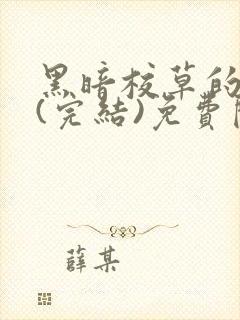 黑暗校草的
(完結)免費
薛某